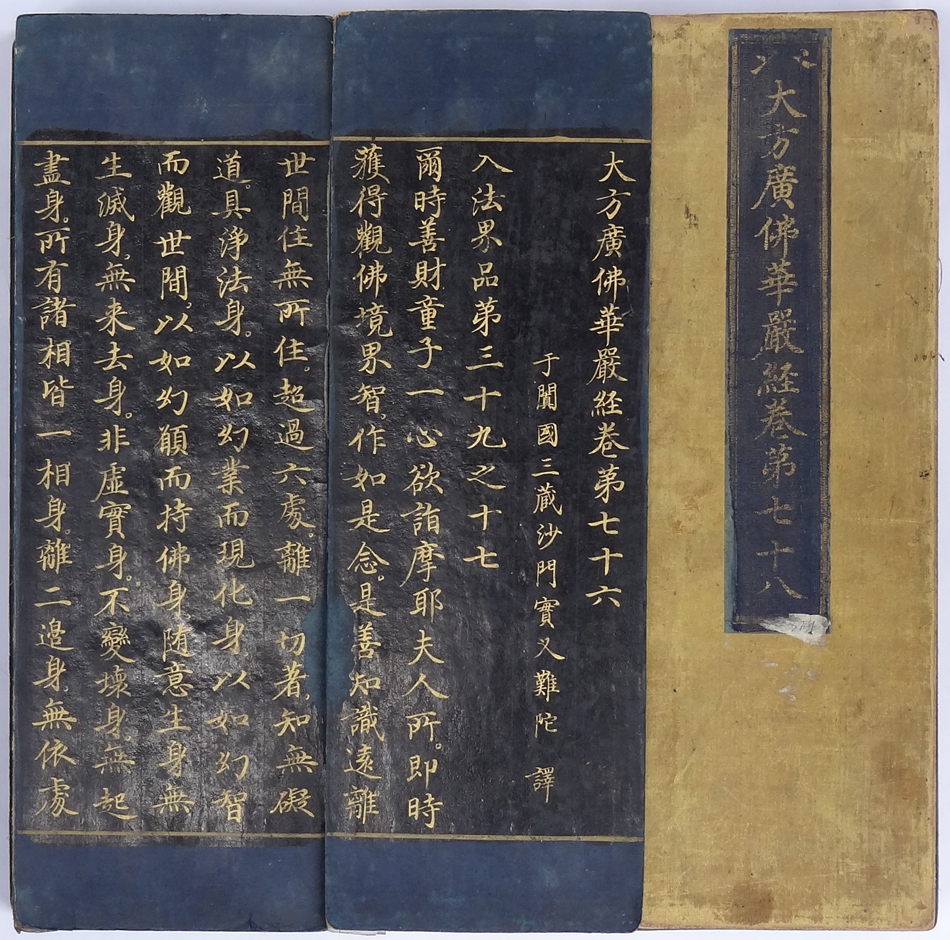 大方廣佛華嚴経巻第七十八
大方廣佛華嚴経巻第七十六
于闐國三蔵沙門實叉難陀 譯
入法界品第三十九之十七
爾時善財童子一心欲詣摩耶夫人所。即時
獲得觀佛境界智。作如是念。是善知識遠離
世間住無所住。超過六處。離一切著。知無礙
道。具淨法身。以如幻業而現化身以如幻智
而觀世間。以如幻願而持佛身随意生身無
生滅身。無来去身。非虛實身。不變壞身。無起
盡身。所有諸相皆一相身。離二邊身。無依處